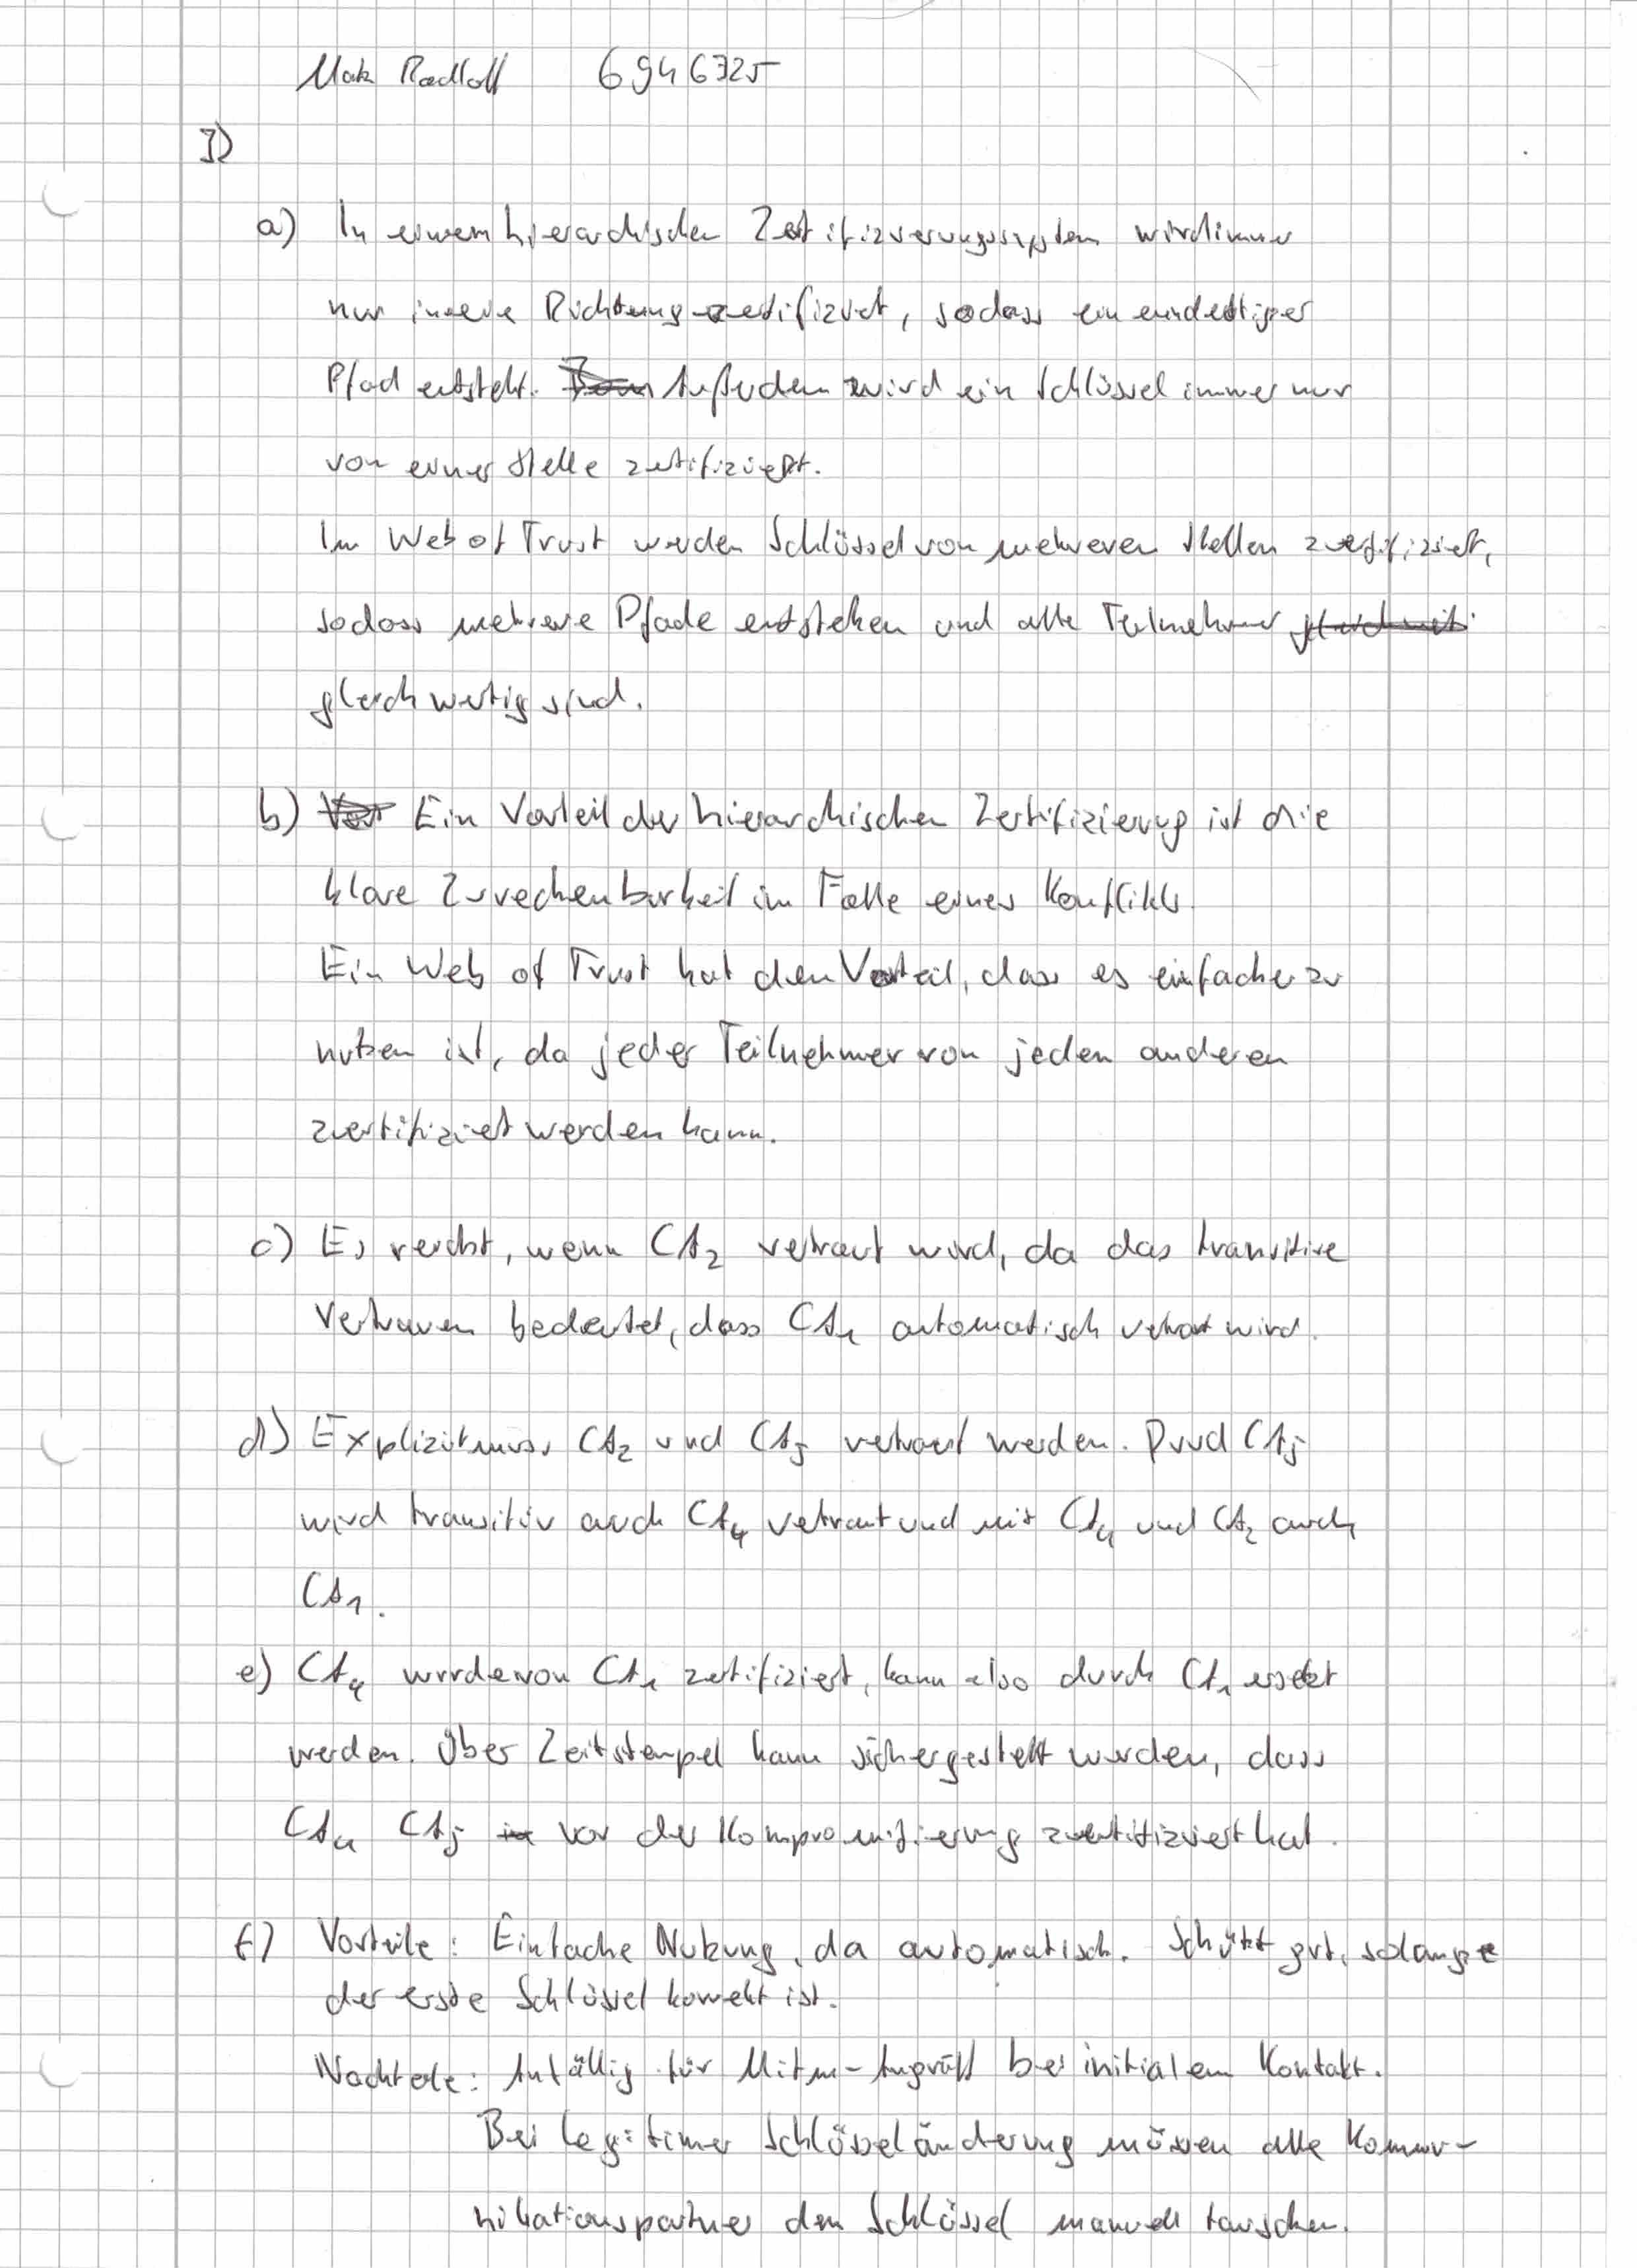 Radloff 6946325
I)
a) In einem hierarchischen Zertifizierungssystem wird immer
nur in eine Richtung zertifiziert, sodass ein eindeutiger
Pfad entsteht. Außerdem wird ein Schlüssel immer nur
von einer Stelle zertifiziert.
Im Web of Trust werden Schlüssel von mehreren Stellen zertifiziert,
sodass mehrere Pfade entstehen und alle Teilnehmer
gleichwertig sind.
b) Ein Vorteil der hierarchischen Zertifizierung ist die
klare Zurechenbarkeit im Falle eines Konflikts.
Ein Web of Trust hat den Vorteil, dass es einfacher zu
nutzen ist, da jeder Teilnehmer von jedem anderen
zertifiziert werden kann.
c) Es reicht, wenn CA₂ vertraut wird, da das transitive
Vertrauen bedeutet, dass CA₁ automatisch vertraut wird.
d) Explizit muss CA₂ und CA₅ vertraut werden. Durch CA₅
wird transitiv auch CA₄ vertraut und mit CA₄ und CA₂ auch
CA₁.
e) CA₄ wurde von CA₁ zertifiziert, kann also durch CA₁ ersetzt
werden. Über Zeitstempel kann sichergestellt werden, dass
CA₄ CA₅ vor der Kompromitierung zertifiziert hat.
f) Vorteile: Einfache Nutzung, da automatisch. Schützt gut, solange
der erste Schlüssel korrekt ist.
Nachteile: Anfällig für Mitm-Angriff bei initialem Kontakt.
Bei legitimer Schlüsseländerung müssen alle Kommu-
nikationspartner den Schlüssel manuell tauschen.